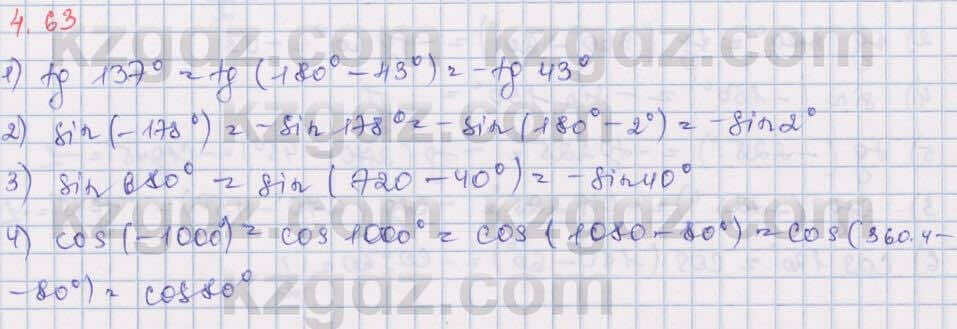 4.63
1) tg 137° = tg (180° - 43°) = -tg 43°
2) sin (-178°) = -sin 178° = -sin (180° - 2°) = -sin 2°
3) sin 680° = sin (720 - 40°) = -sin 40°
4) cos (-1000°) = cos 1000° = cos (1080 - 80°) = cos (360.4 -
- 80°) = cos 80°
kzgdz.com
kzgdz.com
kzgdz.com